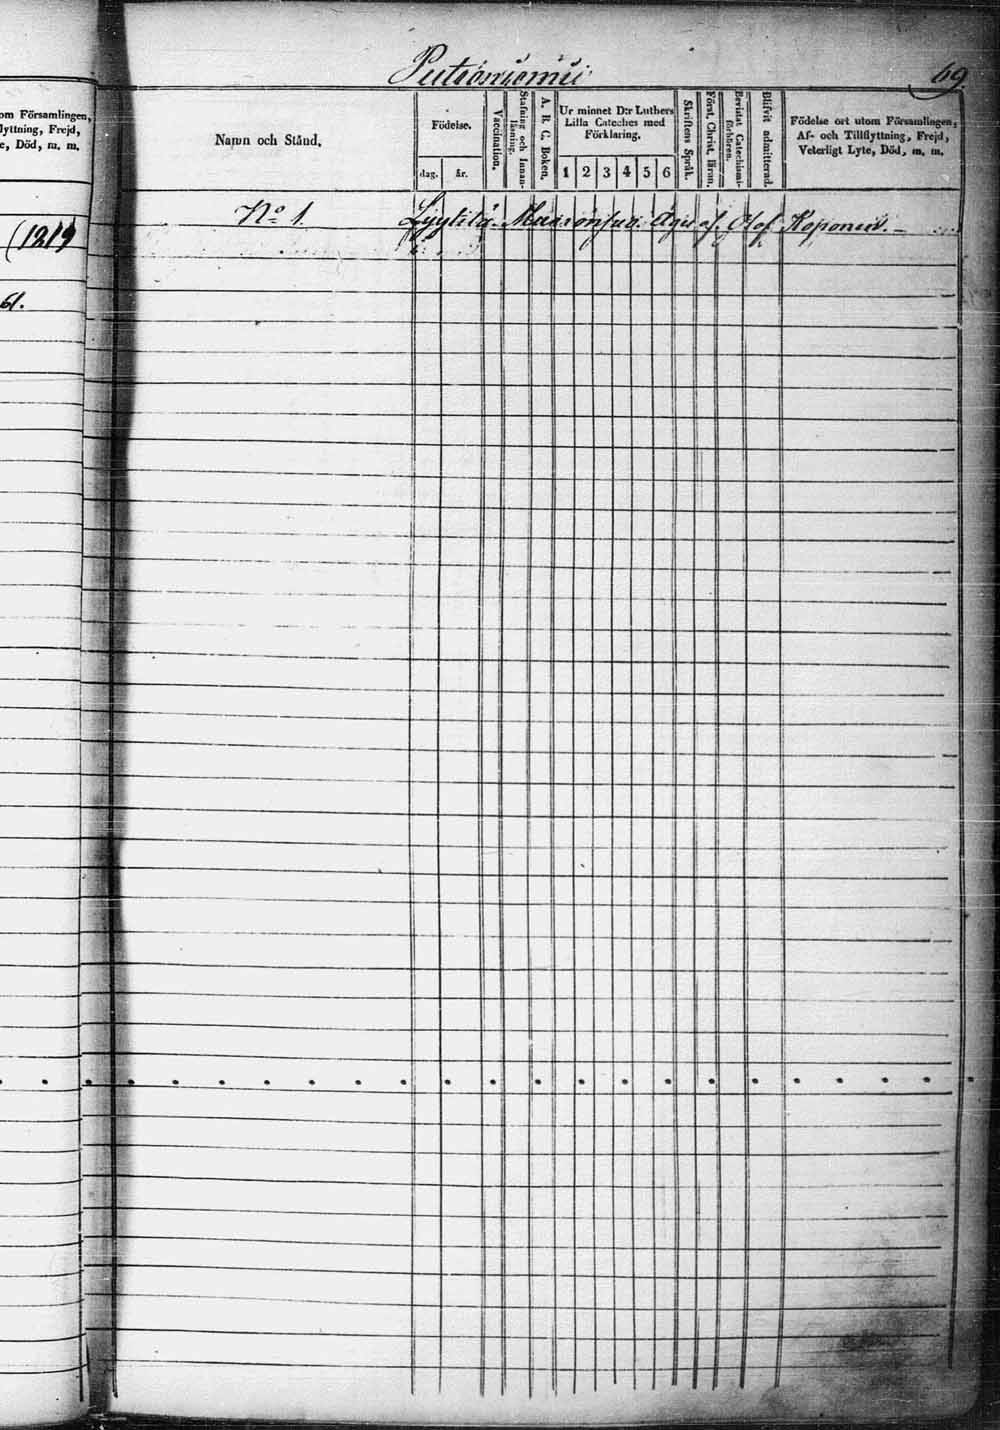 69.
om Församlingen,
lyttning, Frejd,
e, Död, m. m.
(1819
61.
Namn och Stånd.
Födelse.
dag. år.
Vaccination.
Stafning och Innan-
läsning.
A. B. C. Boken.
Ur minnet D:r Luthers
Lilla Cateches med
Förklaring.
1 2 3 4 5 6
Skriftens Språk.
Först. Christ. Läran.
Bevistat Catechismi-
förhören.
Blifvit admitterad.
Födelse ort utom Församlingen,
Af- och Tillflyttning, Frejd,
Veterligt Lyte, Död, m. m.
No 1 Lyytilä. af Olof Koponen.